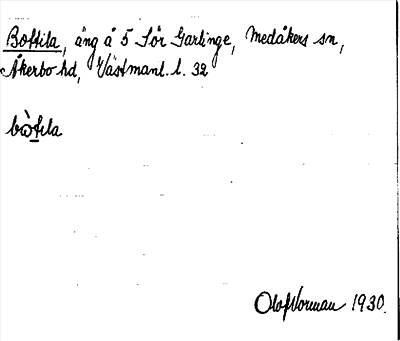 Bottila, äng å 5 Sör Garlinge, Medåkers sn,
Åkerbo hd, Västmanl. l. 32
bòtila
Olof Norman 1930.